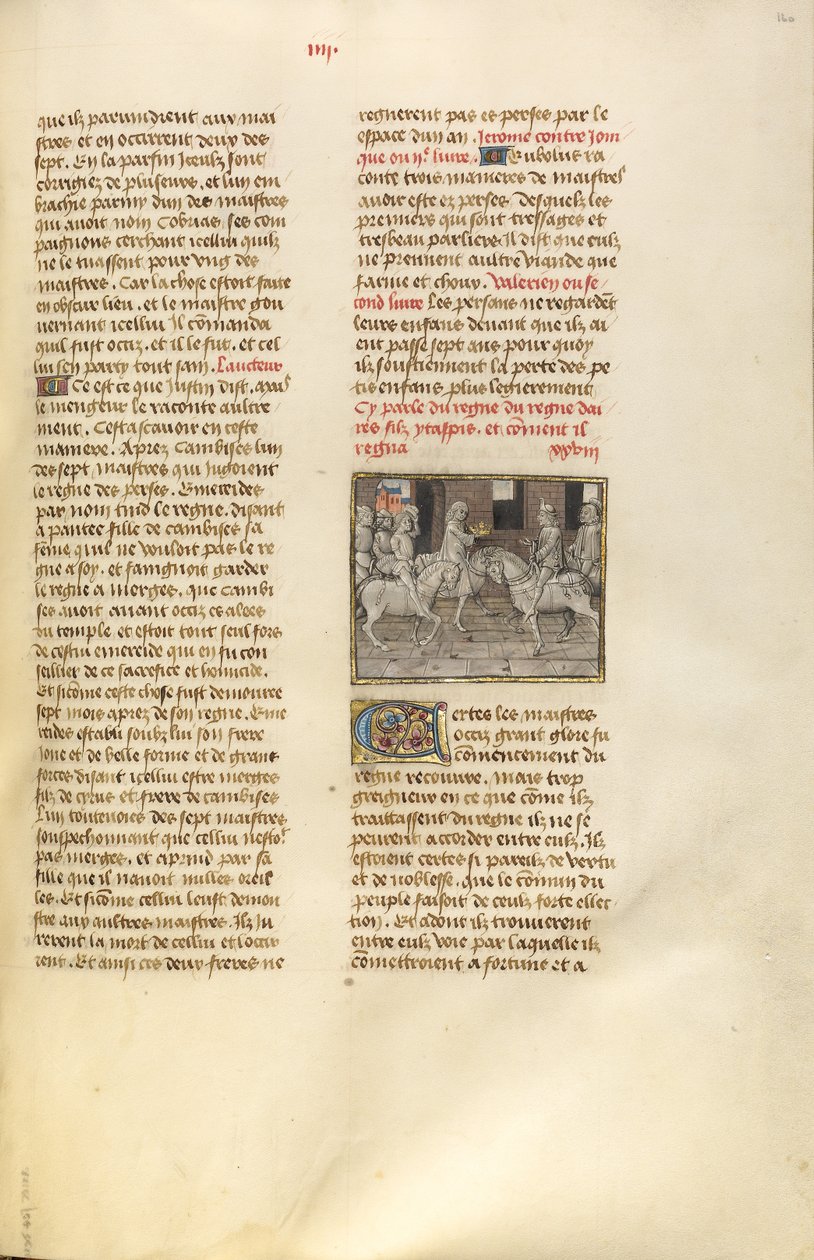 160
iiij.
que ilz paruindrent aux mai
stres et en occirrent deux des
sept. En la parfin Iceulx sont
corrigiez de pluiseurs. et lun em
brachie parmy dun des maistres
qui auoit nom Cobrias, ses com
paignons cerchant icellui quilz
ne le tuassent pour vng des
maistres. Car la chose estoit faite
en obscur lieu. et le maistre gou
uernant icellui Il cōmanda
quil fust occiz. et il le fut. et cel
lui sen party tout sain. Laucteur
Ce est ce que Justin dist. mais
le mengeur le raconte aultre
ment. Cestascauoir en ceste
maniere. Aprez Cambises lun
des sept maistres qui Jugoient
le regne des perses. Emereides
par nom tind le regne. disant
a pantee fille de cambises sa
fēme quil ne vouloit pas le re
gne a soy. et faingnoit garder
le regne a Merges. que Cambi
ses auoit auant occiz es alees
du temple et estoit tout seul fors
de cestui emereide qui en fu con
seillier de ce sacrefice et homicide.
Et sicōme ceste chose fust demouree
sept mois aprez de son regne. Eme
reides establi soubz lui son frere
Joue et de belle forme et de grans
forces disant icellui estre merges
filz de cyrus et frere de cambises
Lun toutenoies des sept maistres
souspechonnant que cellui nestoit
pas merges. et aprind par sa
fille que il nauoit nulles oreil
les. Et sicōme cellui leust demon
stre aux aultres maistres. Ilz Ju
rerent la mort de cellui et locir
rent. Et ainsi ces deux freres ne
regnerent pas es perses par le
espace dun an. Jerome contre Jom
que ou iie liure. Eubolus ra
conte trois manieres de maistres
auoir este ez perses Desquelz les
premiers qui sont tressages et
tresbeau parliers Il dist que eulz
ne prennent aultre viande que
farine et choux. Valerien ou se
cond liure Les persans ne regardēt
leurs enfans deuant que ilz ai
ent passe sept ans pour quoy
ilz soustiennent la perte des pe
tis enfans plus legierement
Cy parle du regne du regne dai
res filz ytaspis. et cōment il
regna xxviij
Certes les maistres
occiz grant glore fu
cōmencement du
regne recouure. mais trop
greigneur en ce que cōme ilz
traittassent du regne ilz ne se
peurent accorder entre eulz. Ilz
estoient certes si pareilz de vertu
et de noblesse. que le cōmun du
peuple faisoit de ceulz forte ellec
tion. Et adont ilz trouuerent
entre eulz voie par laquelle ilz
cōmettroient a fortune et a